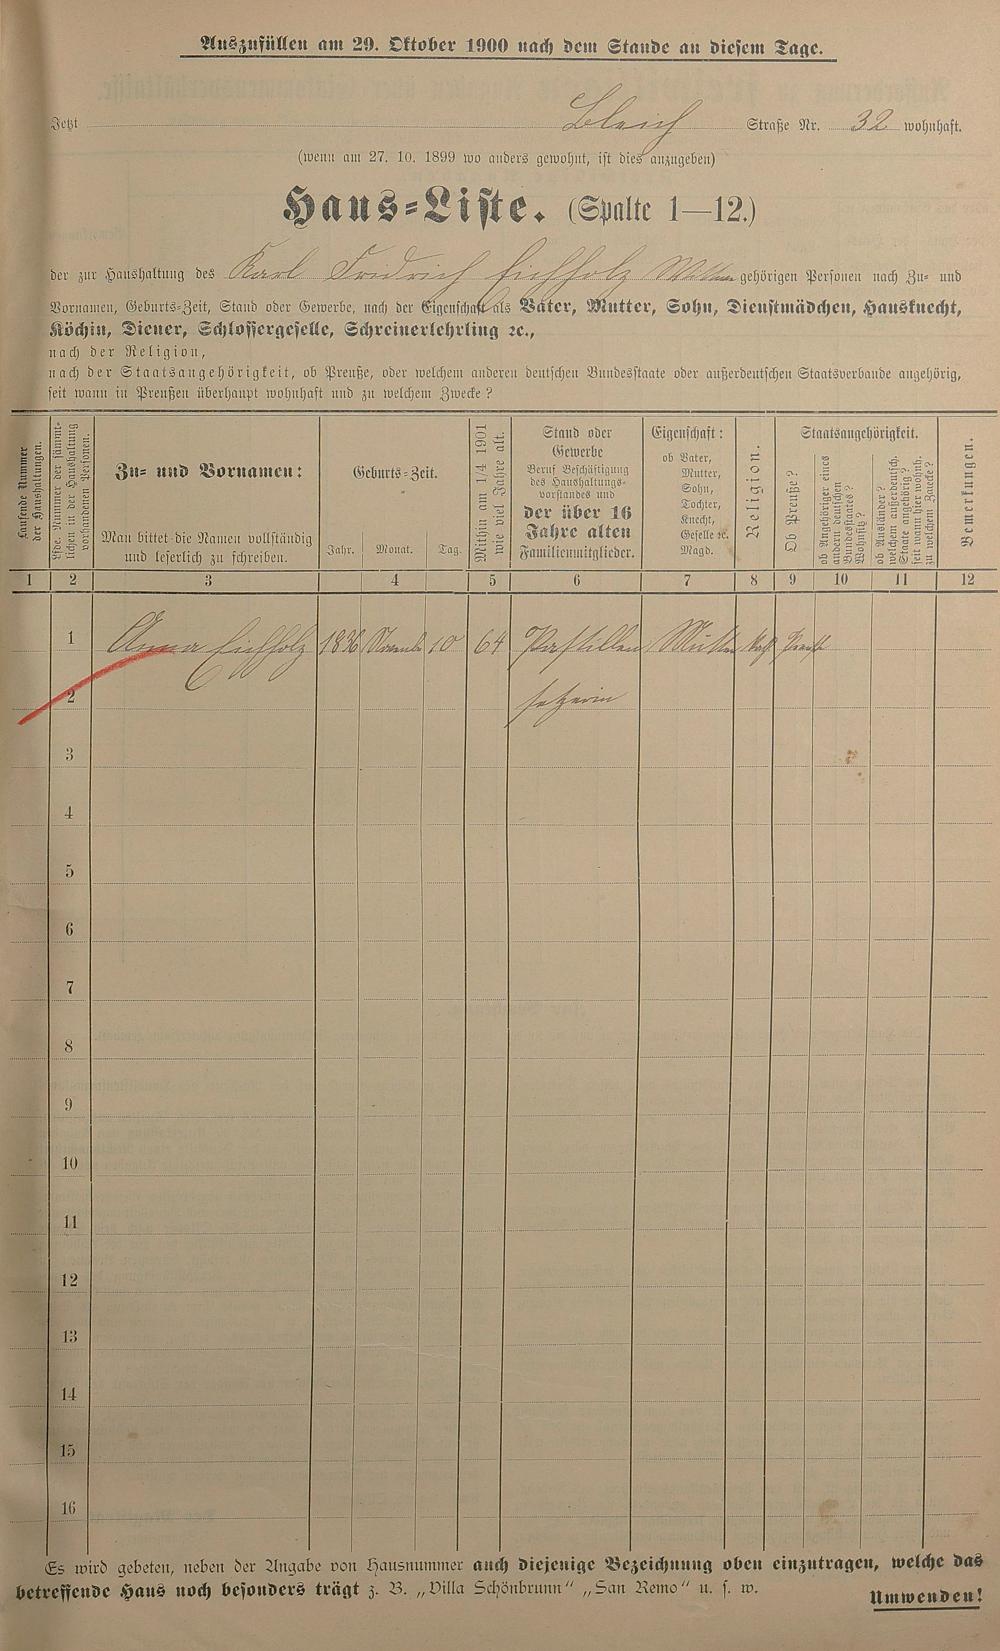 Auszufüllen am 29. Oktober 1900 nach dem Stande an diesem Tage.
Jetzt Bleich Straße Nr. 32 wohnhaft.
(wenn am 27. 10. 1899 wo anders gewohnt, ist dies anzugeben)
Haus-Liste. (Spalte 1—12.)
der zur Haushaltung des Karl Fridrich Eichholz gehörigen Personen nach Zu- und
Vornamen, Geburts-Zeit, Stand oder Gewerbe, nach der Eigenschaft als Vater, Mutter, Sohn, Dienstmädchen, Hausknecht,
Köchin, Diener, Schlossergeselle, Schreinerlehrling ꝛc.,
nach der Religion,
nach der Staatsangehörigkeit, ob Preuße, oder welchem anderen deutschen Bundesstaate oder außerdeutschen Staatsverbande angehörig,
seit wann in Preußen überhaupt wohnhaft und zu welchem Zwecke?
Laufende Nummer
der Haushaltungen.
Lfde. Nummer der sämmt-
lichen in der Haushaltung
vorhandenen Personen.
Zu- und Vornamen:
Man bittet die Namen vollständig
und leserlich zu schreiben.
Geburts-Zeit.
Jahr. Monat. Tag.
Mithin am 1/4 1901
wie viel Jahre alt.
Stand oder
Gewerbe
Beruf Beschäftigung
des Haushaltungs-
vorstandes und
der über 16
Jahre alten
Familienmitglieder.
Eigenschaft:
ob Vater,
Mutter,
Sohn,
Tochter,
Knecht,
Geselle ꝛc.
Magd.
Religion.
Staatsangehörigkeit.
Ob Preuße?
ob Angehöriger eines
andern deutschen
Bundesstaates?
Wohnsitz?
ob Ausländer?
welchem außerdeutsch.
Staate angehörig?
seit wann hier wohnh.
zu welchem Zwecke?
Bemerkungen.
1 2 3 4 5 6 7 8 9 10 11 12
1 Anna Eichholz 1836 Novemb 10 64 Pastillen Mutter Kath Preuße
2 setzerin
3
4
5
6
7
8
9
10
11
12
13
14
15
16
Es wird gebeten, neben der Angabe von Hausnummer auch diejenige Bezeichnung oben einzutragen, welche das
betreffende Haus noch besonders trägt z. B. „Villa Schönbrunn“ „San Remo“ u. s. w.
Umwenden!